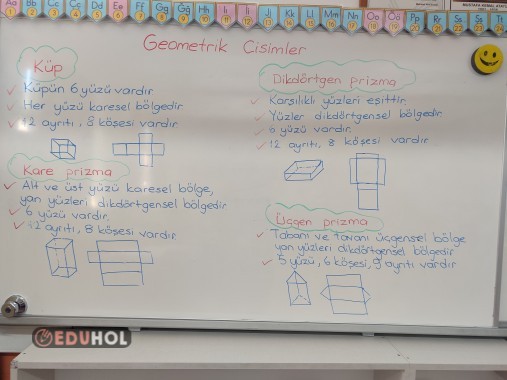 Aa Bb Cc Çç Dd Ee Ff Gg Ğğ Hh Iı İi Jj Kk Ll Mm Nn Oo Öö Pp Rr Ss Şş Tt
Geometrik Cisimler
Küp
Küpün 6 yüzü vardır.
Her yüzü karesel bölgedir.
12 ayrıtı, 8 köşesi vardır.
Kare prizma
Alt ve üst yüzü karesel bölge,
yan yüzleri dikdörtgensel bölgedir.
6 yüzü vardır.
12 ayrıtı, 8 köşesi vardır.
Dikdörtgen prizma
Karşılıklı yüzleri eşittir.
Yüzler dikdörtgensel bölgedir.
6 yüzü vardır.
12 ayrıtı, 8 köşesi vardır
Üçgen prizma
Tabanı ve tavanı üçgensel bölge
yan yüzleri dikdörtgensel bölgedir
5 yüzü, 6 köşesi, 9 ayrıtı vardır
EDUHOL